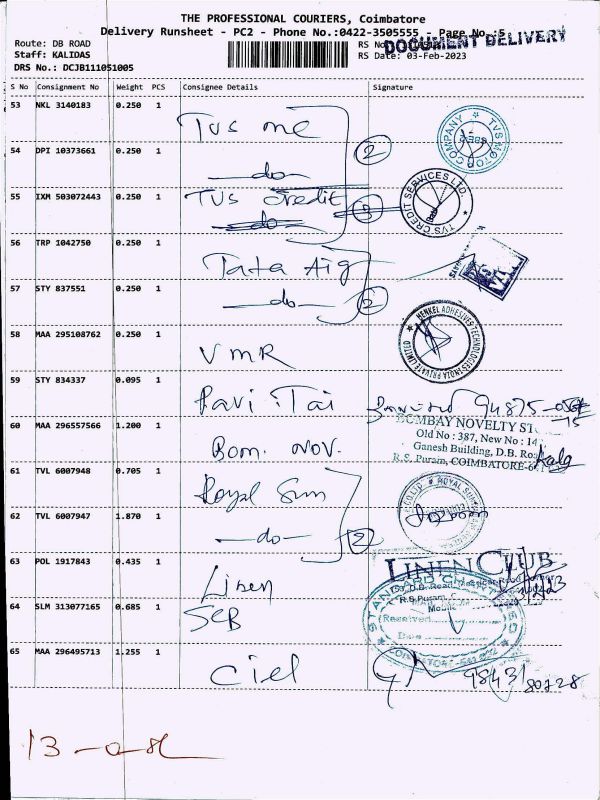 THE PROFESSIONAL COURIERS, Coimbatore
Delivery Runsheet - PC2 - Phone No.:0422-3505555 - Page No.:5
DOCUMENT DELIVERY
Route: DB ROAD
RS No
Staff: KALIDAS
RS Date: 03-Feb-2023
DRS No.: DCJB111051005
S No Consignment No Weight PCS Consignee Details Signature
53 NKL 3140183 0.250 1 Tvs me
TVS MOTOR COMPANY
54 DPI 10373661 0.250 1 —do— 2
55 IXM 503072443 0.250 1 TVS Credit
do
TVS CREDIT SERVICES LTD.
56 TRP 1042750 0.250 1 Tata Aig
57 STY 837551 0.250 1 —do— 2
58 MAA 295108762 0.250 1 VMR
HENKEL ADHESIVES TECHNOLOGIES INDIA PRIVATE LIMITED
59 STY 834337 0.095 1 Ravi Tai
60 MAA 296557566 1.200 1 Bom. Nov.
BOMBAY NOVELTY
Old No : 387, New No : 14
Ganesh Building, D.B. Road
R.S. Puram, COIMBATORE-
61 TVL 6007948 0.705 1 Royal Sun
ROYAL SUN
62 TVL 6007947 1.870 1 —do— 2
63 POL 1917843 0.435 1 Linen
LINEN CLUB
R.S.Puram, C
Mobile
64 SLM 313077165 0.685 1 SCB
STANDARD CHARTERED
Received
Date
65 MAA 296495713 1.255 1 Ciel
98431 80728
13